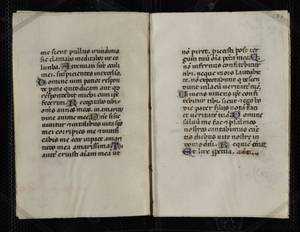 me sicut pullus irundinis
sic clamabo meditabor ut co
lumba. Attenuati sunt oculi
mei suspicientes in excelsu.
Domine vim patior respon
de pro me quid dicam aut qd
respondebit michi cum ipse
fecerim. Recogitabo tibi om
nes annos meos in amaritu
dine anime mee. Dñe si sic
vivitur
mei corripies me et vivifi
cabis me ecce in pace amari
tudo mea amarissima. Tu
autem eruisti aiam meā ut
nō piret, proiecisti post ter
gum tuū oīa pctā mea. Q
nō infernus confitebitur
tibi, neqȝ mors laudabit
te, nō expectabunt qui descen
dunt in lacū veritatē tuā.
vivens vivens ipse confi
tebitur tibi, sicut et ego ho
die pater filiis notā faci
et veritatē tuā. Domine
salvū me fac et psalmos
nostros cantabimus cūc
tis diebus vite nostre in
domo dñi. Requiē eternā
Et lux perpetua